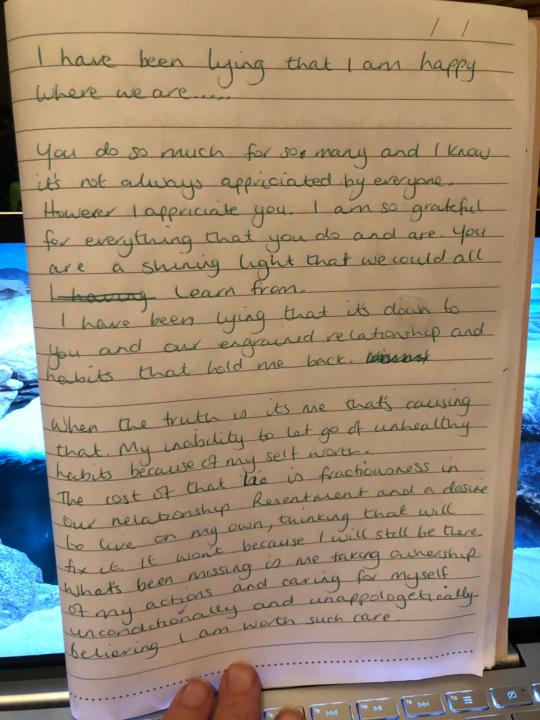 / /
I have been lying that I am happy
where we are......
You do so much for so many and I know
it's not always appriciated by everyone.
However I appriciate you. I am so grateful
for everything that you do and are. You
are a shining light that we could all
I having learn from.
I have been lying that it's down to
you and our engrained relationship and
habits that hold me back.
When the truth is its me that's causing
that. My inability to let go of unhealthy
habits because of my self worth.
The cost of that lie is fractiousness in
our relationship Resentment and a desire
to live on my own, thinking that will
fix it. It won't because I will still be there.
What's been missing is me taking ownership
of my actions and caring for myself
unconditionally and unappologetically
believing I am worth such care.